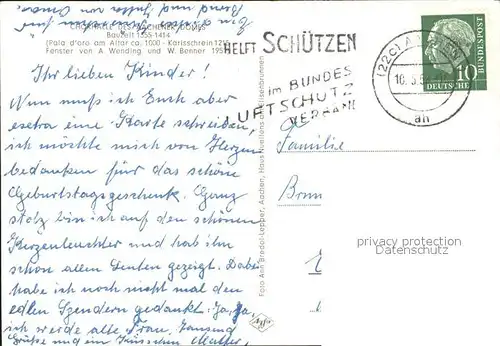 Ein paar
CHORHALLE DES AACHENER DOMES
Bauzeit 1355-1414
(Pala d'oro am Altar ca. 1000 - Karlsschrein 1215
Fenster von A. Wendling und W. Benner 195
Ihr lieben Kinder!
Nun muß ich Euch aber
extra eine Karte schreiben,
ich möchte mich von Herzen
bedanken für das schöne
Geburtstagsgeschenk. Ganz
stolz bin ich auf den schönen
Kerzenleuchter und hab ihn
schon allen Leuten gezeigt. Dabei
habe ich noch nicht mal den
edlen Spendern gedankt. Ja, Ja,
ich werde alte Frau. Tausend
Grüße und ein Küsschen Mutter,
Foto Ann Bredol-Lepper, Aachen, Haus
HELFT SCHÜTZEN
im BUNDES
LUFTSCHUTZ
VERBAND
(22c) AACHEN
10
DEUTSCHE
BUNDESPOST
an
Familie
Brun
Agfa
privacy protection
watermark